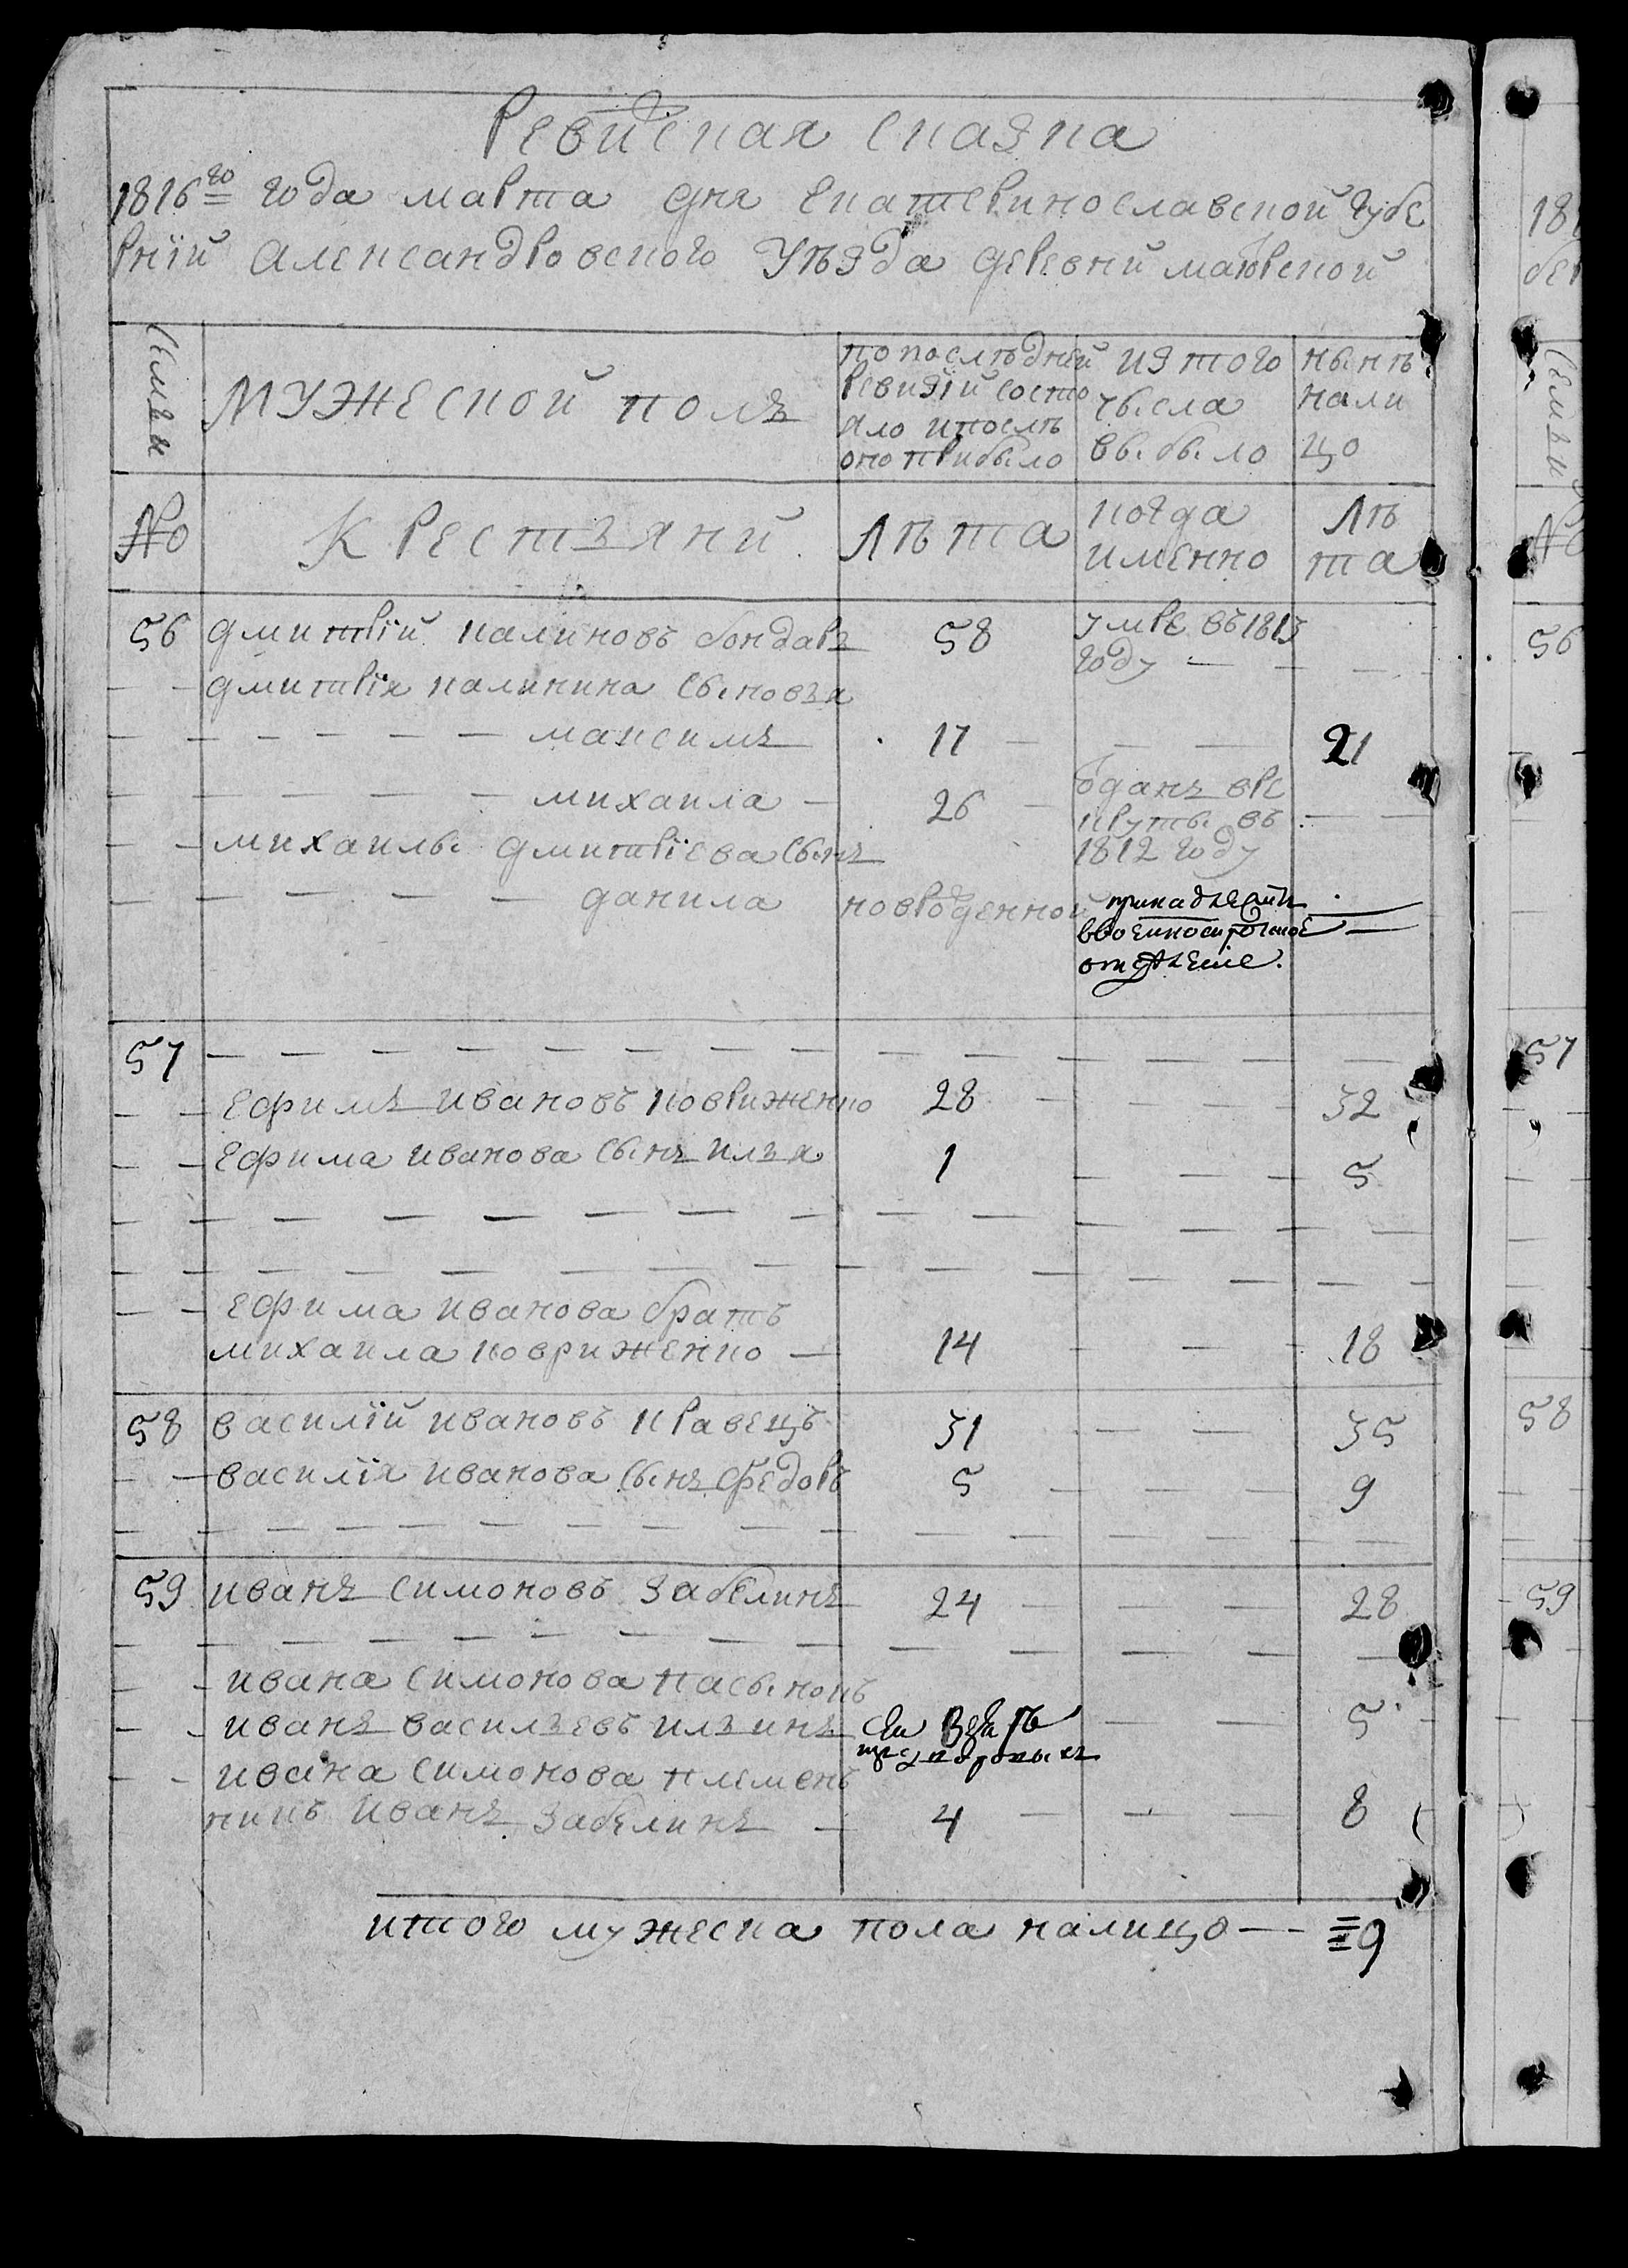 Ревиская сказка
1816го года марта дня екатеринославской губе
рнїй александровского уѣзда деревни маювской
семьи
мужеской полъ
по послѣдней
ревизїй состо
яло и послѣ
оно прибыло
из того
чысла
выбыло
нынѣ
нали
цо
№
Крестьяни
лѣта
когда
именно
лѣ
та
56 дмитрїй калиновъ бондарь 58 умре въ 1813
году
дмитрїя калинина сыновья
максимъ 17 21
михаила 26 ѿданъ вре
круты въ
1812 году
михаилы дмитрїева сынъ
данила новрожденной принадлежитъ
ввоенносиротское
отделение.
57
ефимъ ивановъ ковриженко 28 32
ефима иванова сынъ илья 1 5
ефима иванова братъ
михаила ковриженко 14 18
58 василїй ивановъ кравецъ 31 35
василїя иванова сынъ федоръ 5 9
59 иванъ симоновъ забелинъ 24 28
ивана симонова пасынокъ
иванъ васильевъ ильинъ 5
ивана симонова племен
никъ иванъ забелинъ 4 8
итого мужеска пола налицо 9
56
57
58
59